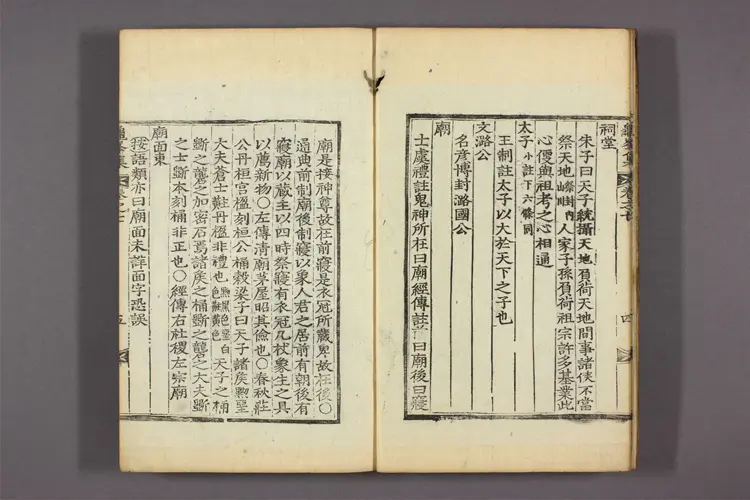 祠堂
朱子曰天子統攝天地負荷天地間事諸侯不當
祭天地與天地不相關內人家子孫負荷祖宗許多基業此
心便與祖考之心相通
太子小註下六條同
王制註太子以大於天下之子也
文潞公
名彦博封潞國公
廟
士虞禮註鬼神所在曰廟經傳註前曰廟後曰寢
廟是接神尊故在前寢是衣冠所藏卑故在後〇
通典前制廟後制寢以象人君之居前有朝後有
寢廟以藏主以四時祭寢有衣冠几杖象生之具
以薦新物〇左傳清廟茅屋昭其儉也〇春秋莊
公丹桓宮楹刻桓公桷穀梁子曰天子諸侯黝堊
大夫蒼士黈丹楹非禮也黝黑色堊白色黈黃色天子之桷
斲之礱之加密石焉諸侯之桷斲之礱之大夫斲
之士斲本刻桷非正也〇經傳右社稷左宗廟
廟面東
按語類亦曰廟面未詳面字恐誤
五
四